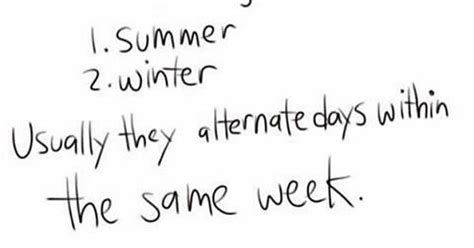 1. Summer
2. winter
Usually they alternate days within
the same week.